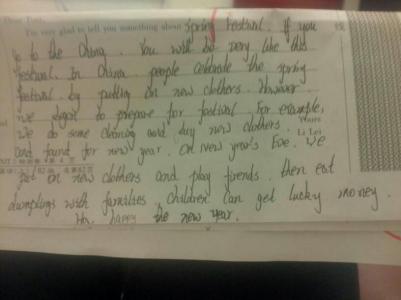 Dear Tom,
I'm very glad to tell you something about Spring Festival. If you
go to the China. You will be very like this
festival. In China people celebrate the spring
festival by putting on new clothers. However.
we begin to prepare for festival. For example,
we do some cleaning and buy new clothers.
Yours
Li Lei
and found for new year. On New year's Eve. We
put on new clothers and play firends. then eat
dumplings with families. Children can get lucky money.
happy the new year.